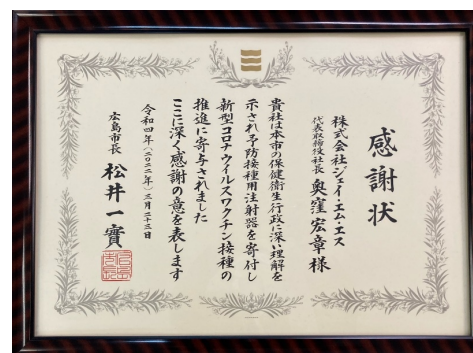 感謝状
株式会社ジェイ・エム・エス
代表取締役社長 奥窪宏章様
貴社は本市の保健衛生行政に深い理解を
示され予防接種用注射器を寄付し
新型コロナウイルスワクチン接種の
推進に寄与されました
ここに深く感謝の意を表します
令和四年(二〇二二年)三月二十三日
広島市長 松井一實